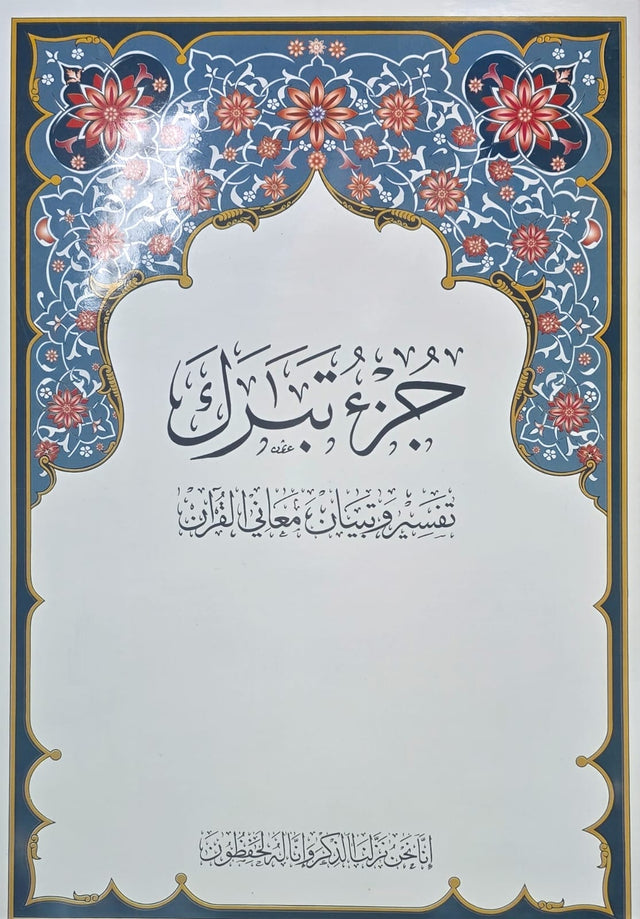 جُزْءُ تَبَٰرَكَ
تَفسِير وَتبيَان مَعَاني القُرآن
إِنَّا نَحْنُ نَزَّلْنَا الذِّكْرَ وَإِنَّا لَهُ لَحَٰفِظُونَ